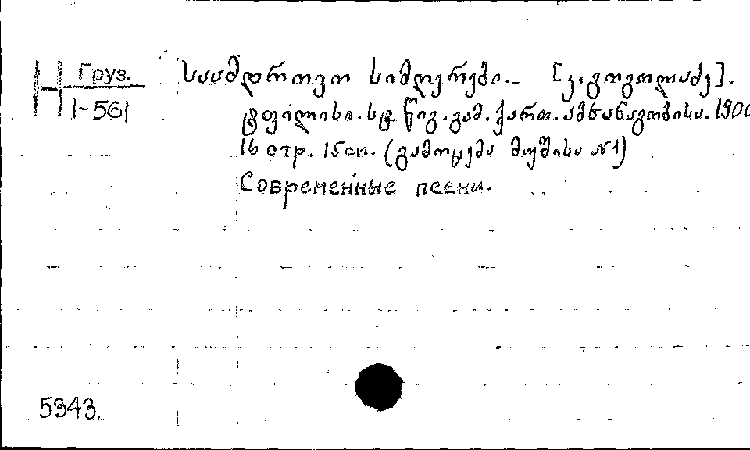 Н Груз.
1-561
საამდროვო სიმღერები.- [კ. გოგოლაძე].
ტფილისი. სტ. წიგ. გამ. ქართ. ამხანაგობისა. 1900
16 стр. 15 см. (გამოცემა მუშისა №1)
Современные песни.
5343.